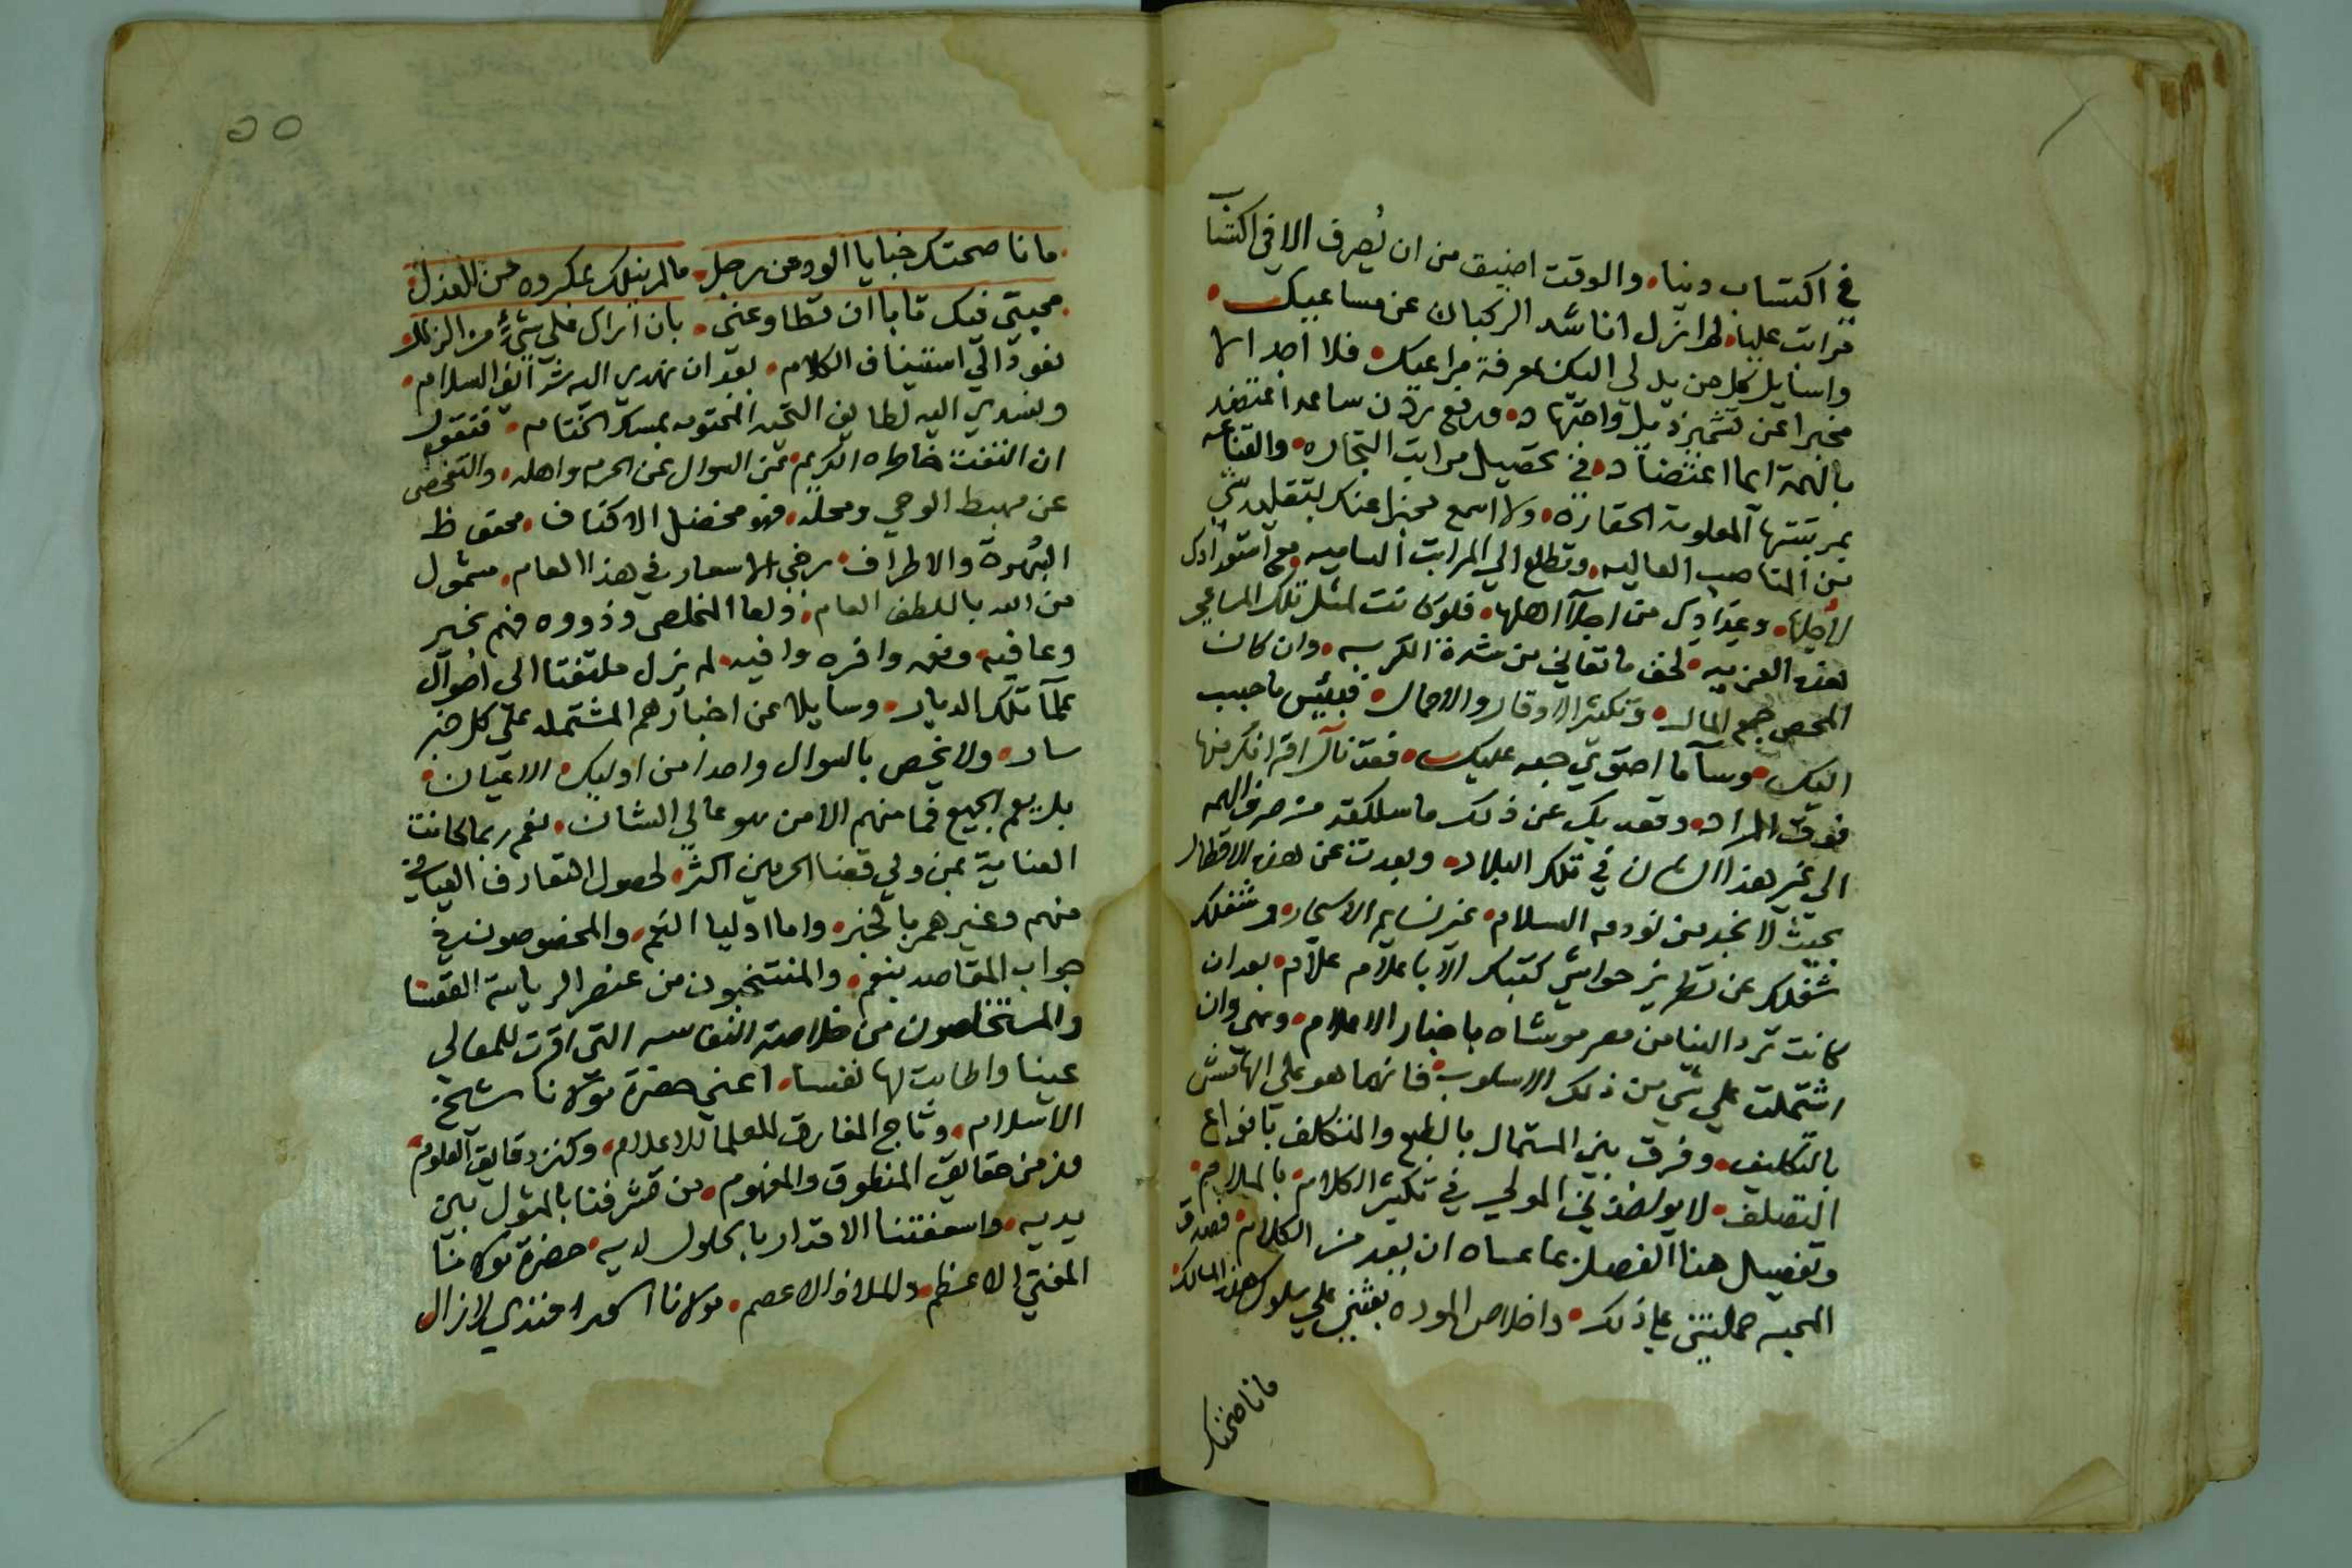 في اكتساب دنيا، والوقت اضيق من ان يُصرف الا في اكتساب
مراتب عليا، لم ازل اناشد الركبان عن مساعيك
واسايل كل من يدلي اليك بمعرفة مراعيك، فلا اجد الا
مخبرا عن تشمير ذيل واجتهاد، ورفع ردن ساعد اعتضد
بالهمة ايما اعتضاد، في تحصيل مراتب التجاره، والقناعه
بمرتبتها المعلومة الحقاره، ولا اسمع مخبرا عنك بتقليد شي
من المناصب العاليه، وتطلع الي المراتب الساميه، مع استعدادك
لاجلها، وعدادك من اجلا اهلها، فلو كانت لمثل تلك المساعي
هذه العزبيه، لخف ما تعاني من شدة الكربيه، وان كان
المحص جمع المال، وتكثير الاوقار والاحمال، فبئس ما حبب
اليك، وسآ ما احتوي جمعه عليك، فقد نال اقرانك منها
فوق المراد، وقعد بك عن ذلك ما سلكته من صرف الهمه
الي غير هذا الشان في تلك البلاد، وبعدت عن هذه الاقطار
بحيث لا نجد من نودعه السلام، غير نسايم الاسحار، وشغلك
شغلك عن تطريز حواشي كتبك الا باعلام علام، بعد ان
كانت ترد الينا من مصر موشاه باخبار الاعلام، وهي وان
اشتملت علي شي من ذلك الاسلوب، فانما هو علي الهامش
بالتكليف، وفرق بين المستمال بالطبع والمتكلف بانواع
التصلف، لا يواخذني المولي في تكثير الكلام، بالملام
وتفصيل هذا الفصل بما عساه ان يعد من الكلام، فصدق
المحبه حملتني علي ذلك، واخلاص الموده بعثني علي سلوك هذه المسالك
ما ناصحتك
٥٥
ما ناصحتك خبايا الود من رجل، ما لم ينلك بمكروه من العذل
محبتي فيك تابا ان تطاوعني، بان اراك علي شيء من الزلل
نعود الي استيناف الكلام، بعد ان نهدي اليه شرايف السلام
ونسدي اليه لطايف التحيه المختومه بمسك الختام، فنقول
ان التفت خاطره الكريم، من السوال عن الحرم واهله، والتفحص
عن مهبط الوحي ومحله، فهو مخضل الاكناف، محفوظ
السُهوة والاطراف، رخي الاسعار في هذا العام، مشمول
من الله باللطف العام، واما المخلص وذووه فهم بخير
وعافيه ونعمه وافره وافيه، لم يزل ملتفتا الي احوال
علمآ تلك الديار، وسايلا عن اخبارهم المشتمله علي كل خبر
سار، ولا يخص بالسوال واحدا من اوليك الاعيان
بل يعم الجميع فما منهم الا من هو عالي الشان، نعم ربما كانت
العناية بمن ولي قضا الحرمين اكثر، لحصول التعارف العياني
منهم وغيرهم بالخبر، واما اوليا النعم، والمخصوصون في
جواب المقاصد بنعم، والمنتخبون من عنصر الرياسة القعسا
والمستخلصون من خلاصة النفاسه التي اقرت للمعالي
عينا واطابت لها نفسا، اعني حضرة مولانا شيخ
الاسلام، وتاج المفارق للعلما الاعلام، وكنز دقايق العلوم
ورمز حقايق المنطوق والمفهوم، من تشرفنا بالمثول بين
يديه، واسعفتنا الاقدار بالحلول لديه، حضرة مولانا
المفتي الاعظم، والملاذ الاعصم، مولانا اسعد افندي لا زال